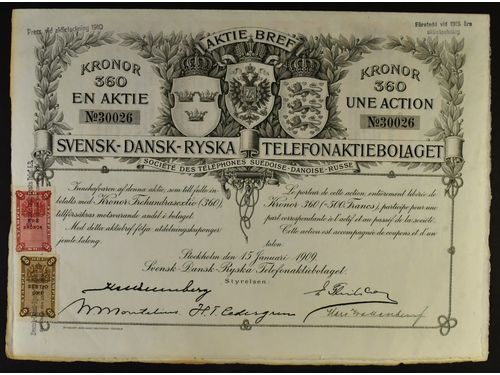 Pres. vid aktieteckning 1910
Företedd vid 1915 års
aktieteckning
AKTIE BREF
KRONOR
360
EN AKTIE
No30026
KRONOR
360
UNE ACTION
No30026
SVENSK-DANSK-RYSKA TELEFONAKTIEBOLAGET
SOCIÉTÉ DES TÉLÉPHONES SUÉDOISE-DANOISE-RUSSE
Innehafvaren af denna aktie, som till fullo in-
betalts med Kronor Trehundrasextio (360),
tillförsäkras motsvarande andel i bolaget.
Med detta aktiebref följa utdelningskuponger
jemte talong.
Le porteur de cette action, entièrement libérée de
Kronor 360 (=500 Francs), participe pour une
part correspondante à l'actif et au passif de la société.
Cette action est accompagnée de coupons et d'un
talon.
Stockholm den 15 Januari 1909.
Svensk-Dansk-Ryska Telefonaktiebolaget:
Styrelsen:
H.T. Cedergren
KRONOR